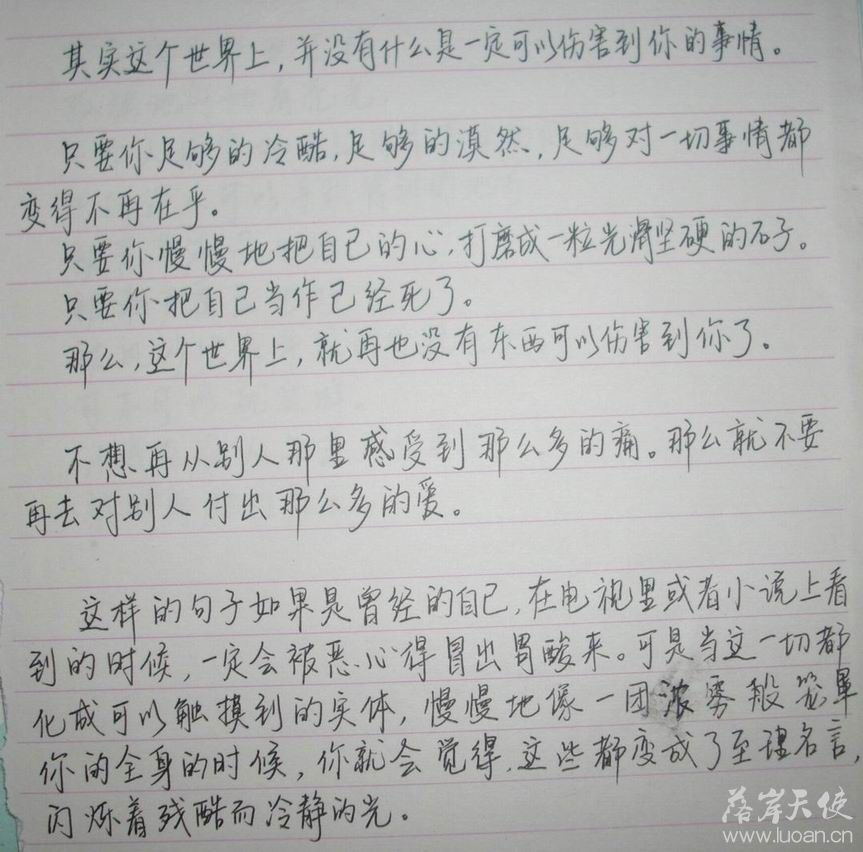 其实这个世界上,并没有什么是一定可以伤害到你的事情。
只要你足够的冷酷,足够的漠然,足够对一切事情都
变得不再在乎。
只要你慢慢地把自己的心,打磨成一粒光滑坚硬的石子。
只要你把自己当作已经死了。
那么,这个世界上,就再也没有东西可以伤害到你了。
不想再从别人那里感受到那么多的痛。那么就不要
再去对别人付出那么多的爱。
这样的句子如果是曾经的自己,在电视里或者小说上看
到的时候,一定会被恶心得冒出胃酸来。可是当这一切都
化成可以触摸到的实体,慢慢地像一团浓雾般笼罩
你的全身的时候,你就会觉得,这些都变成了至理名言,
闪烁着残酷而冷静的光。
落岸天使
www.luoan.cn